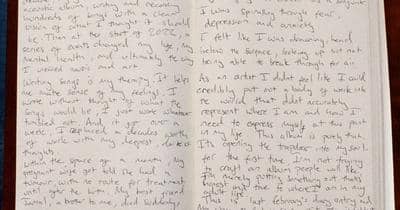 eclectic album, writing and recording
hundreds of songs with a clear
vision of what I thought it should
be. Then at the start of 2022, a
series of events changed my life, my
mental health, and ultimately the way
I viewed music and art.
Writing songs is my therapy. It helps
me make sense of my feelings. I
wrote without thought of what the
songs would be, I just wrote whatever
tumbled out. And in just over a
week, I replaced a decade's worth
of work with my deepest, darkest
thoughts.
Within the space of a month, my
pregnant wife got told she had a
tumour, with no route for treatment
until after the birth. My best friend
Jamal, a brother to me, died suddenly
I was spiralling through fear,
depression and anxiety
I felt like I was drowning, head
below the surface, looking up but not
being able to break through for air
As an artist I didn't feel like I could
credibly put out a body of work into
the world that didn't accurately
represent where I am and how I
need to express myself at this point
in my life. This album is purely that.
It's opening the trapdoor into my soul.
For the first time I'm not trying
to craft an album people will like,
I'm merely putting something out that's
honest and true to where I am in my
adult life.
This is last february's diary entry and